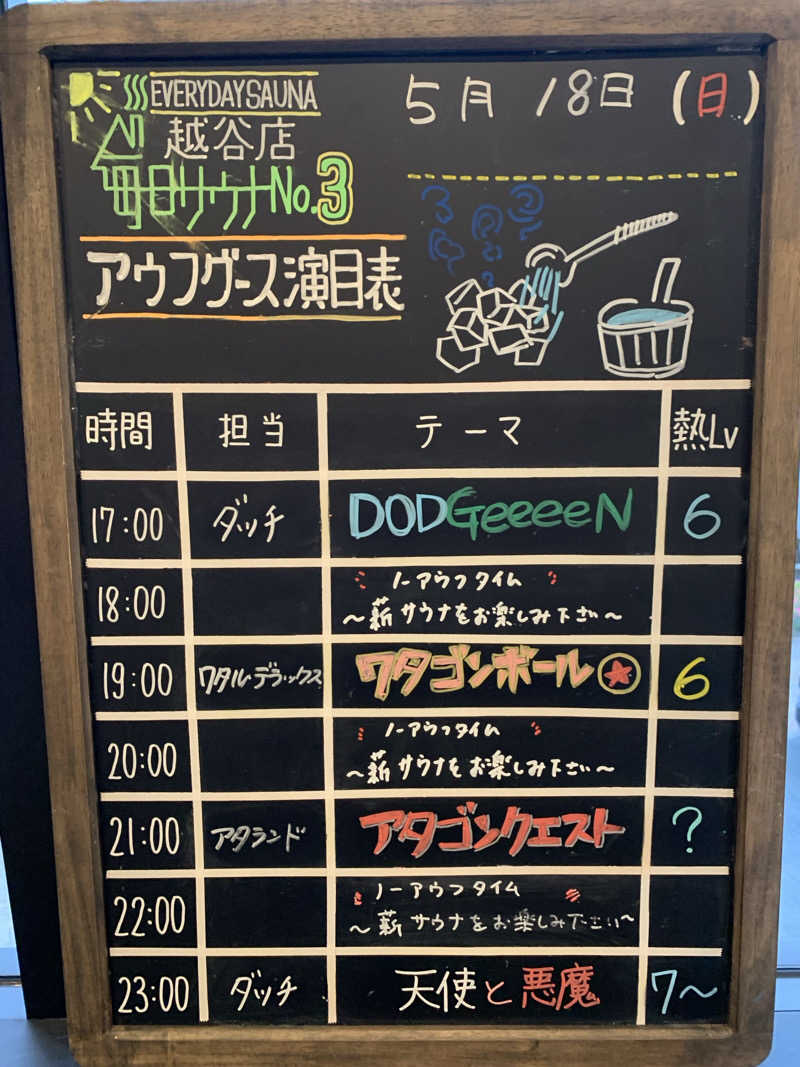 EVERYDAY SAUNA
越谷店
毎日サウナNo.3
アウフグース演目表
5月 18日 (日)
時間 担当 テーマ 熱Lv
17:00 ダッチ DODGeeeeN 6
18:00 ノーアウフタイム
~薪サウナをお楽しみ下さい~
19:00 ワタル・デラックス ワタゴンボール★ 6
20:00 ノーアウフタイム
~薪サウナをお楽しみ下さい~
21:00 アタランド アタゴンクエスト ?
22:00 ノーアウフタイム
~薪サウナをお楽しみ下さい~
23:00 ダッチ 天使と悪魔 7~